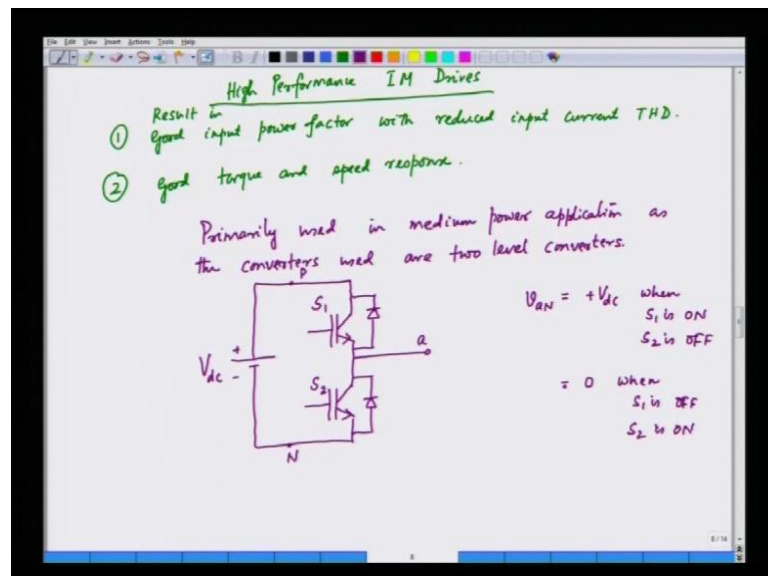 File Edit View Insert Actions Tools Help
High Performance IM Drives
Result in
① Good input power factor with reduced input current THD.
② Good torque and speed response.
Primarily used in medium power application as
the converters used are two level converters.
P
S₁
a
Vdc
+
-
S₂
N
VaN = +Vdc when
S₁ is ON
S₂ is OFF
= 0 when
S₁ is OFF
S₂ is ON
8/14
8